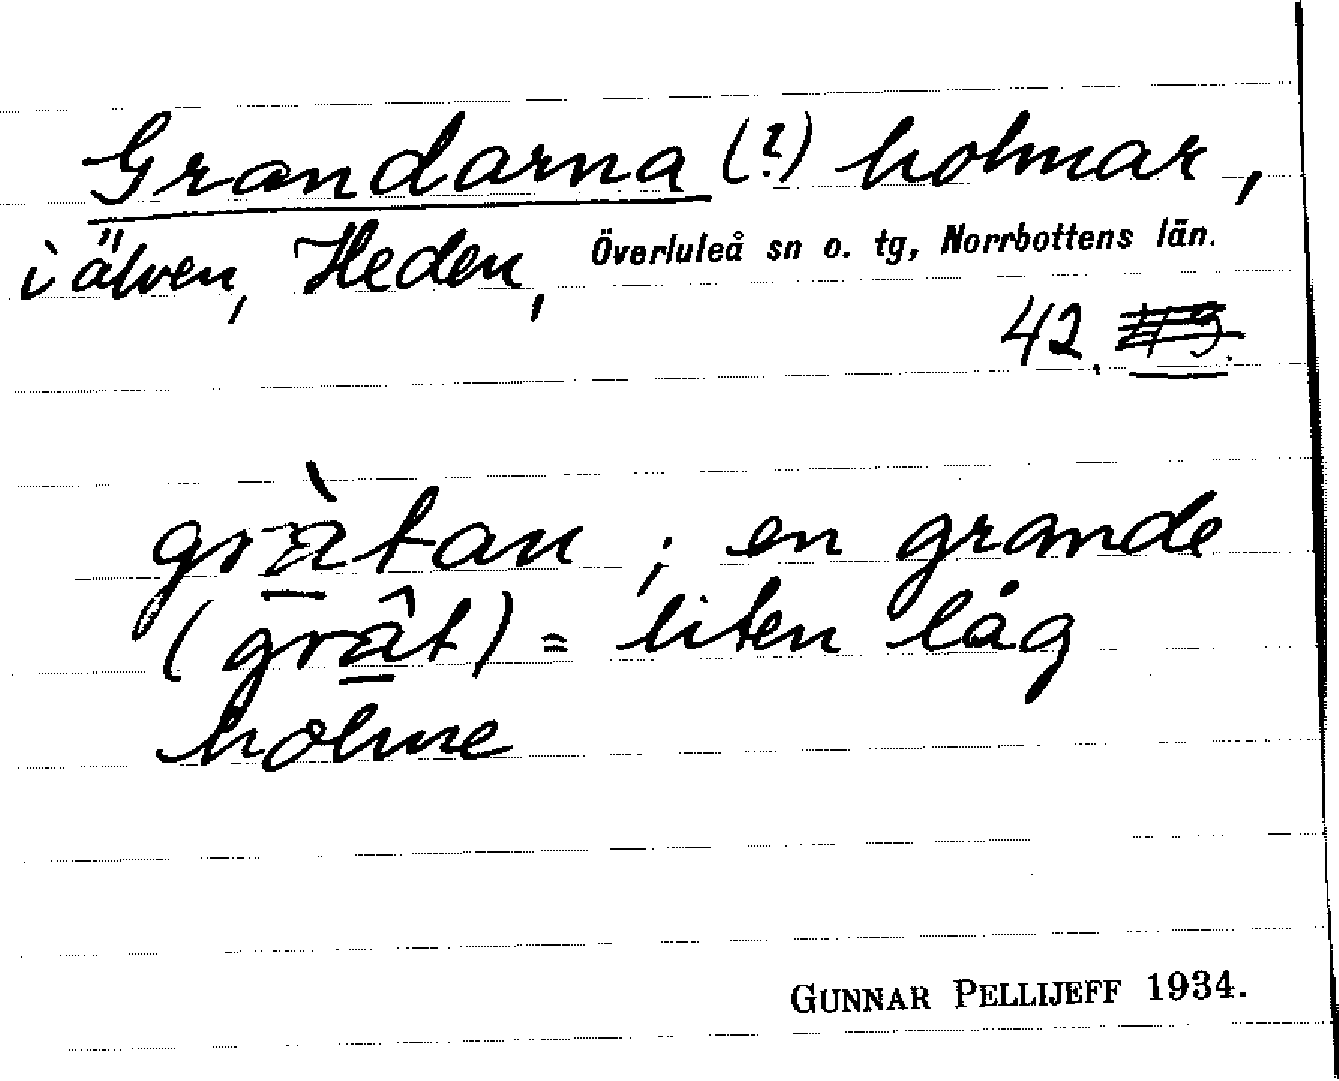 Grandarna (?) holmar,
i älven, Heden, Överluleå sn o. tg, Norrbottens län.
42.
gràtan ; en grande
(grât) = liten låg
holme
GUNNAR PELLIJEFF 1934.